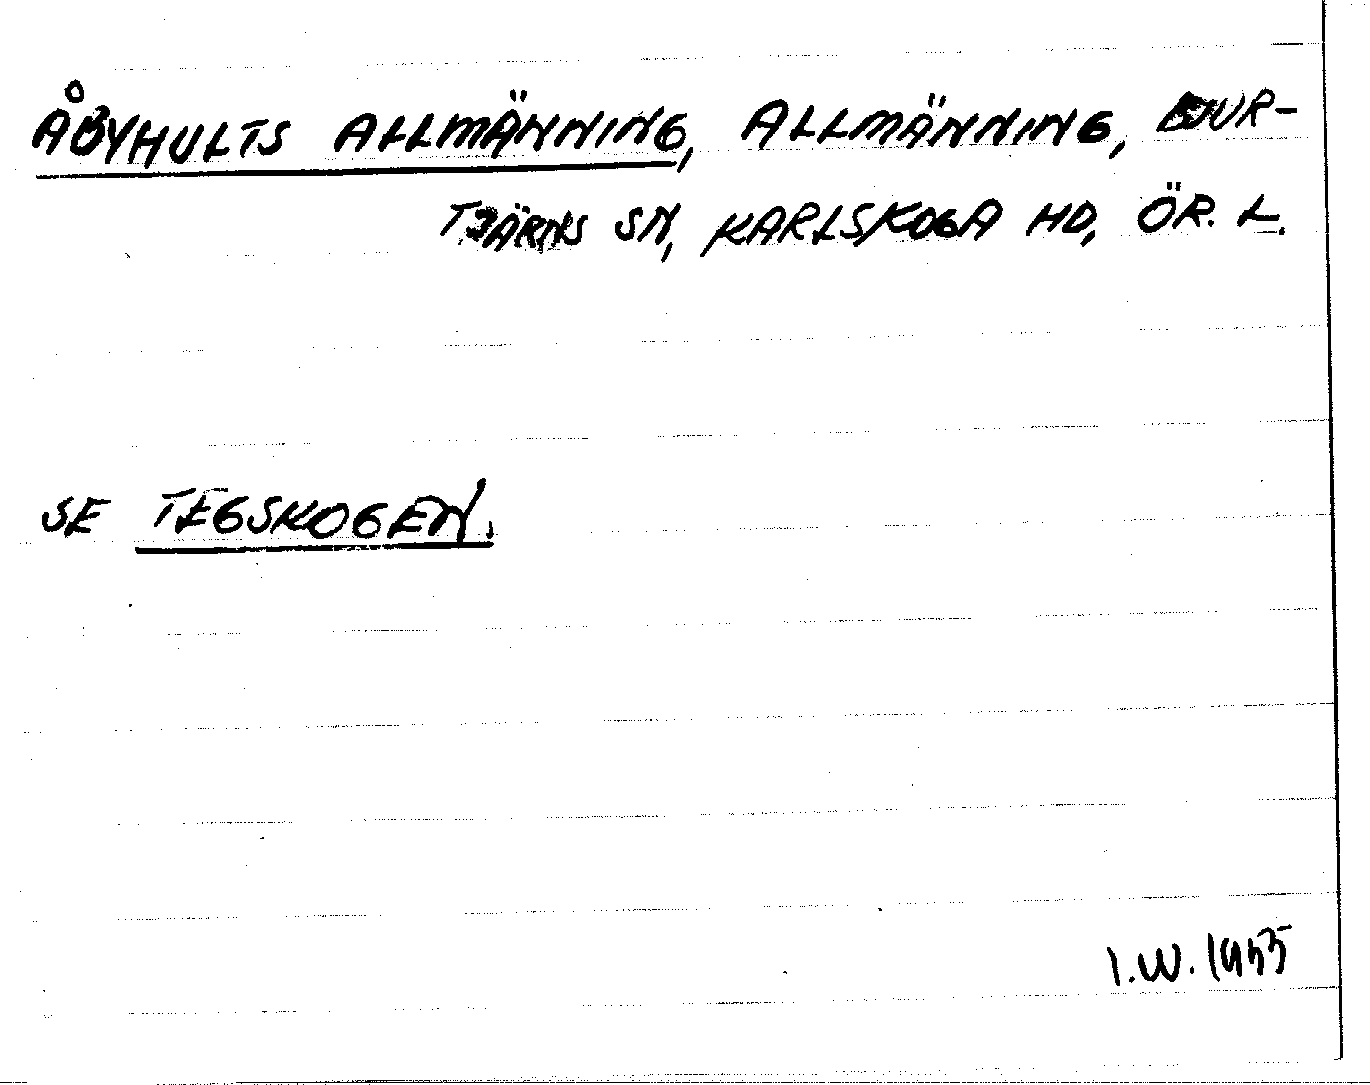 ÅBYHULTS ALLMÄNNING, ALLMÄNNING, BJUR-
TJÄRNS SN, KARLSKOGA HD, ÖR. L.
SE TEGSKOGEN.
I.W. 1955